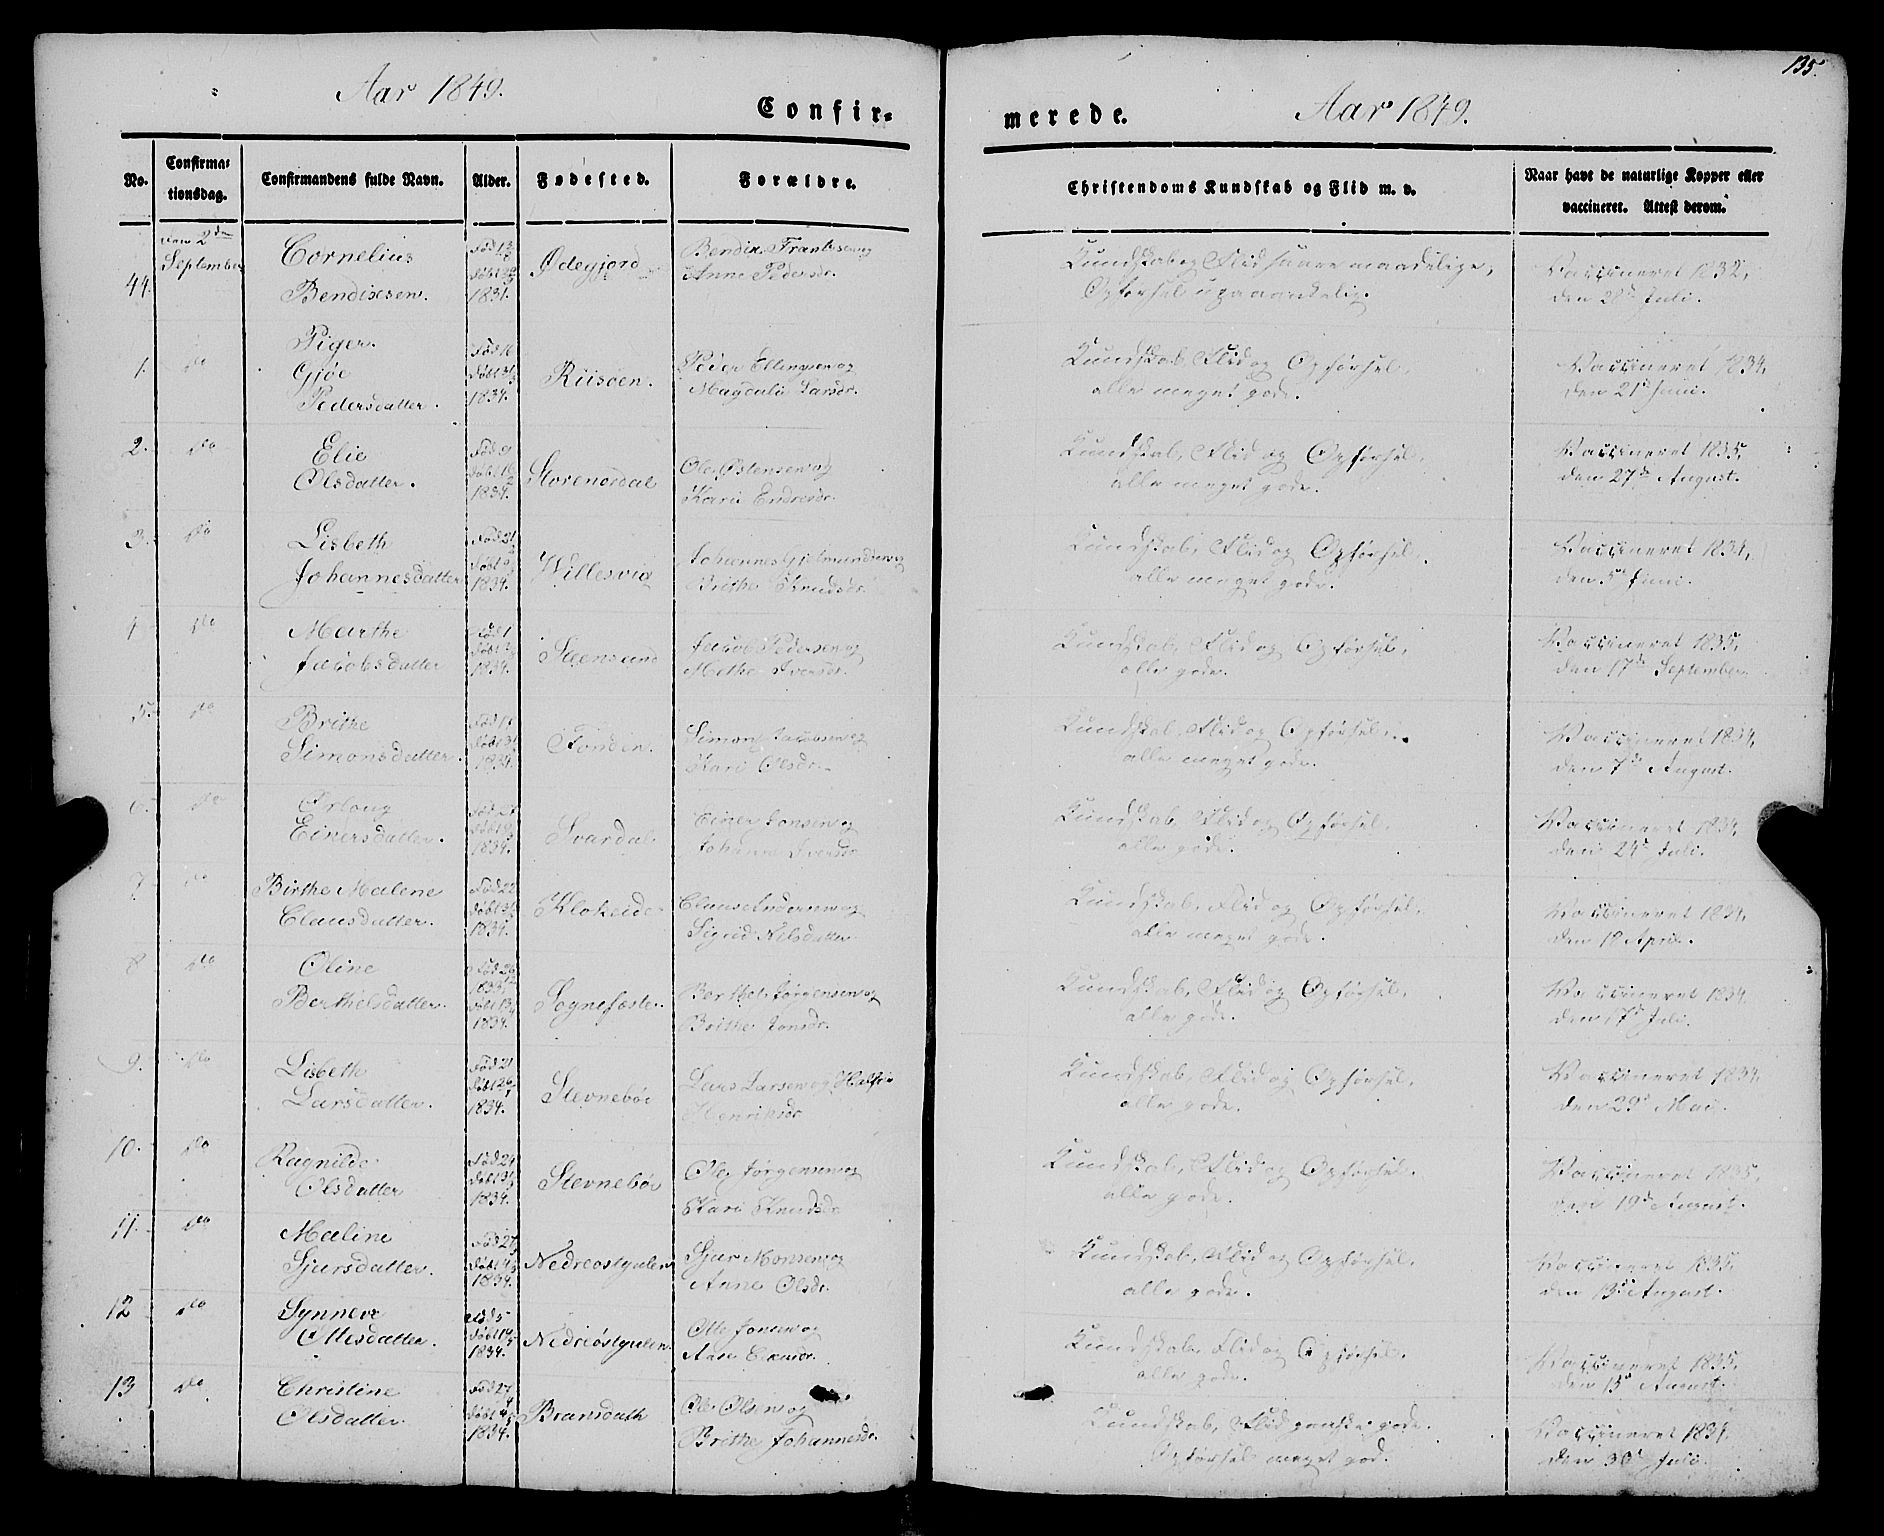 135.
Aar 1849.
Confir-
merede.
Aar 1849.
No.
Confirma-
tionsdag.
Confirmandens fulde Navn.
Alder.
Fødested.
Forældre.
Christendoms Kundskab og Flid m. v.
Naar havt de naturlige Kopper eller
vaccineret. Attest derom.
44.
den 2den
September
Cornelius
Bendixsen.
1831.
Ødegjord
Bendix Frantsen og
Anne Pedersdr.
Kundskab og Flid maadelige,
Opførsel upaaankelig.
Vaccineret 1832,
den 28de Juli.
Piger.
1.
do
Gjøe
Pedersdatter.
Fød 16
1834.
Riisøen.
Peder Ellingsen og
Magdali Larsdr.
Kundskab, Flid og Opførsel,
alle meget gode.
Vaccineret 1834,
den 21de Juni.
2.
do
Elie
Olsdatter.
Fød 9
1834.
Storenordal
Ole Østensen og
Kari Endresdr.
Kundskab, Flid og Opførsel,
alle meget gode.
Vaccineret 1835,
den 27de August.
3.
do
Lisbeth
Johannesdatter
1834.
Willesvig
Johannes Gjelmundsen og
Brithe Knudsdr.
Kundskab, Flid og Opførsel,
alle meget gode.
Vaccineret 1834,
den 5te Juni.
4
do
Marthe
Jacobsdatter
Fød 1
1834.
Steensund
Jacob Pedersen og
Methe Iversdr.
Kundskab, Flid og Opførsel,
alle gode.
Vaccineret 1835,
den 17de September.
5.
do
Brithe
Simonsdatter.
1834.
Fondin.
Simon Jacobsen og
Kari Olsdr.
Kundskab, Flid og Opførsel,
alle meget gode.
Vaccineret 1834,
den 7de August.
6.
do
Einersdatter.
1834.
Svardal.
Einer Jonsen og
Johanne Iversdr
Kundskab, Flid og Opførsel,
alle gode.
Vaccineret 1834,
den 24de Juli.
7
do
Birthe Malene
Clausdatter.
Fød 22
1834.
Klokeide
Claus Andersen og
Sigrid Nilsdatter
Kundskab, Flid og Opførsel,
alle meget gode.
Vaccineret 1834,
den 18 April.
8
do
Oline
Berthelsdatter.
Fød 26
1833,
1834.
Sognefæste.
Berthel Jørgensen og
Brithe Jonsdr.
Kundskab, Flid og Opførsel,
alle gode.
Vaccineret 1834.
den 17de Juli.
9.
do
Lisbeth
Larsdatter.
Fød 21
1834.
Stevnebøe
Lars Larsen og
Henriksdr
Kundskab, Flid og Opførsel,
alle gode.
Vaccineret 1834,
den 29de Mai.
10.
do
Ragnilde
Olsdatter
Fød 24
1834.
Stevnebøe
Ole Jørgensen og
Kari Knudsdr
Kundskab, Flid og Opførsel.
alle gode.
Vaccineret 1835,
den 19de August.
11.
do
Maline
Sjursdatter.
Fød 27
1834.
Nedreostgulen
Sjur Monsen og
Anne Olsdr.
Kundskab, Flid og Opførsel,
alle gode.
Vaccineret 1835,
den 13de August.
12
do
Synneve
Ottesdatter.
Fød 5
1834.
Nedreøstgulen
Otte Jonsen og
Kundskab, Flid og Opførsel,
alle gode.
Vaccineret 1835,
den 13de August.
13
do
Christine
Olsdatter.
Fød 27
1834.
Bransdath
Ole Olsen og
Brithe Johannesdr.
Kundskab, Flid ganske gode.
Opførsel meget god.
Vaccineret 1834.
den 30te Juli.